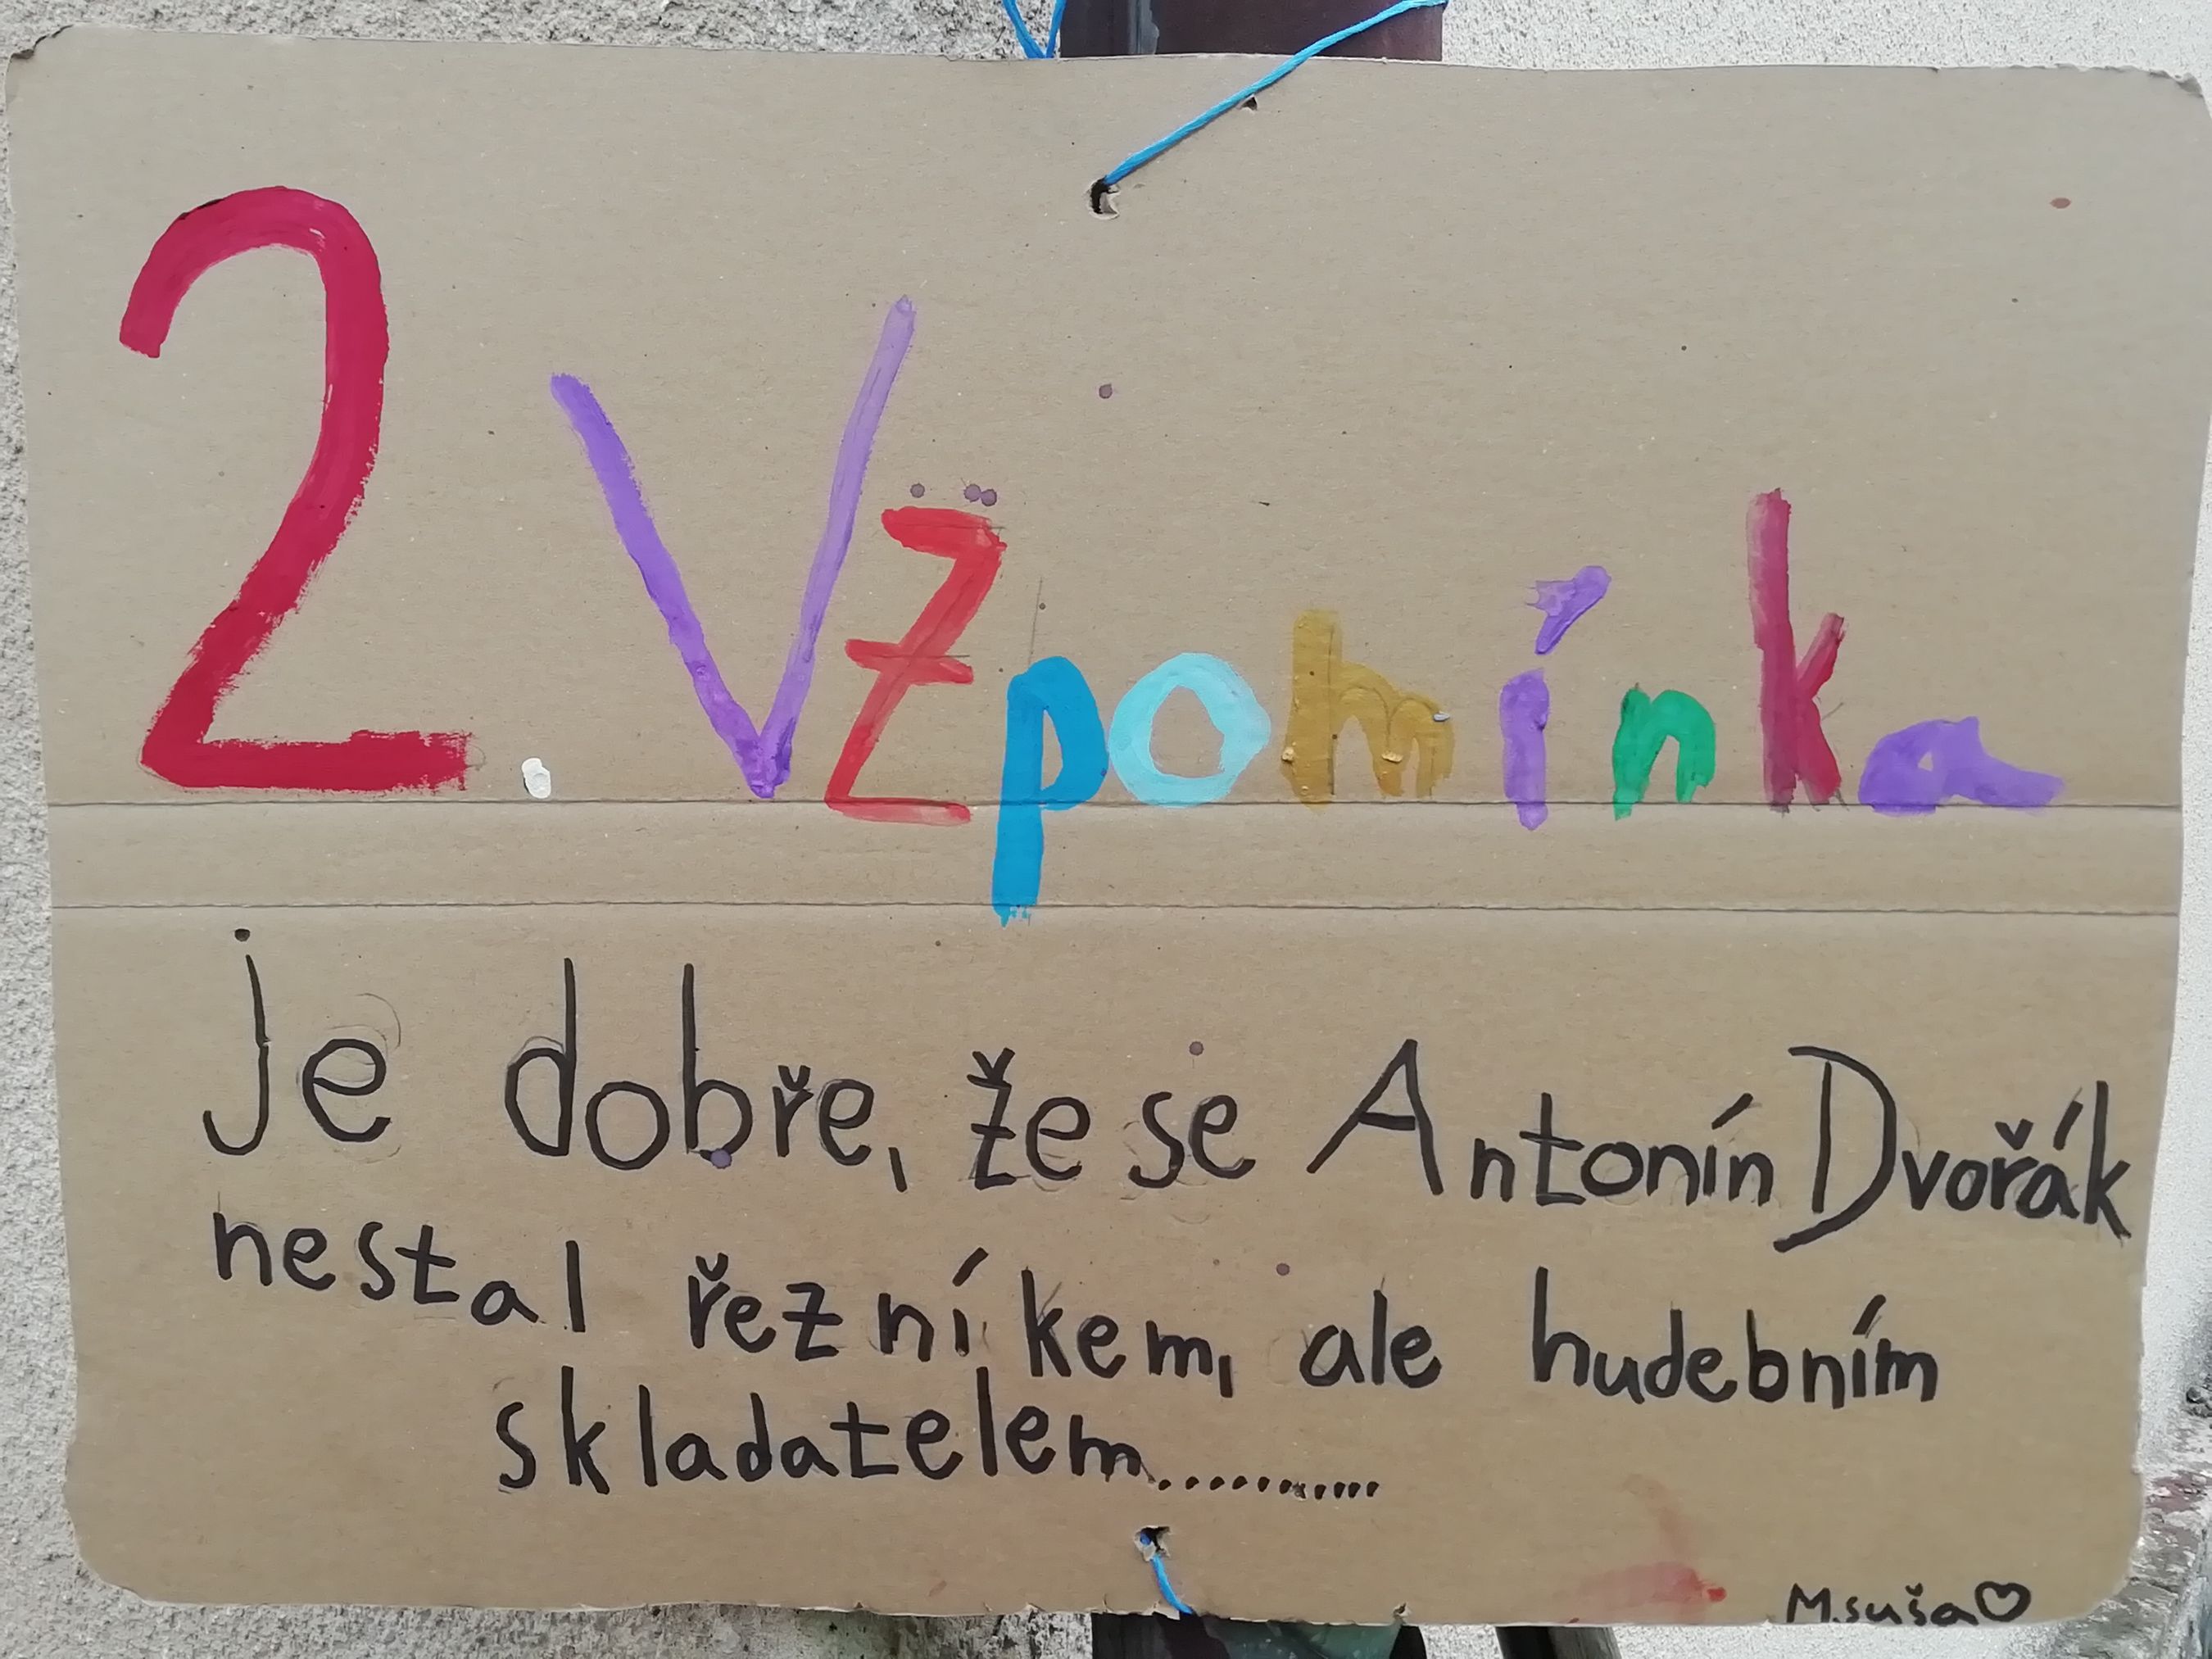 2. Vzpomínka
je dobře, že se Antonín Dvořák
nestal řezníkem, ale hudebním
skladatelem............
M.suša♡